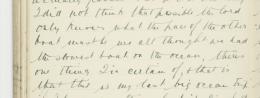 I did not think that possible the lord
only knows what the pace of the other
boat must be we all thought we had
the slowest boat on the ocean, theres
one thing I'm certain of, & that is
that this is my last big ocean trip